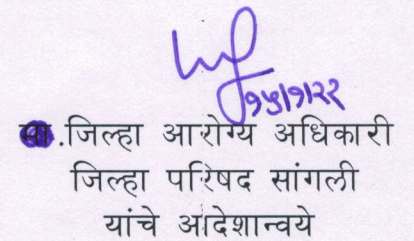 १५/१/२२
मा.जिल्हा आरोग्य अधिकारी
जिल्हा परिषद सांगली
यांचे आदेशान्वये